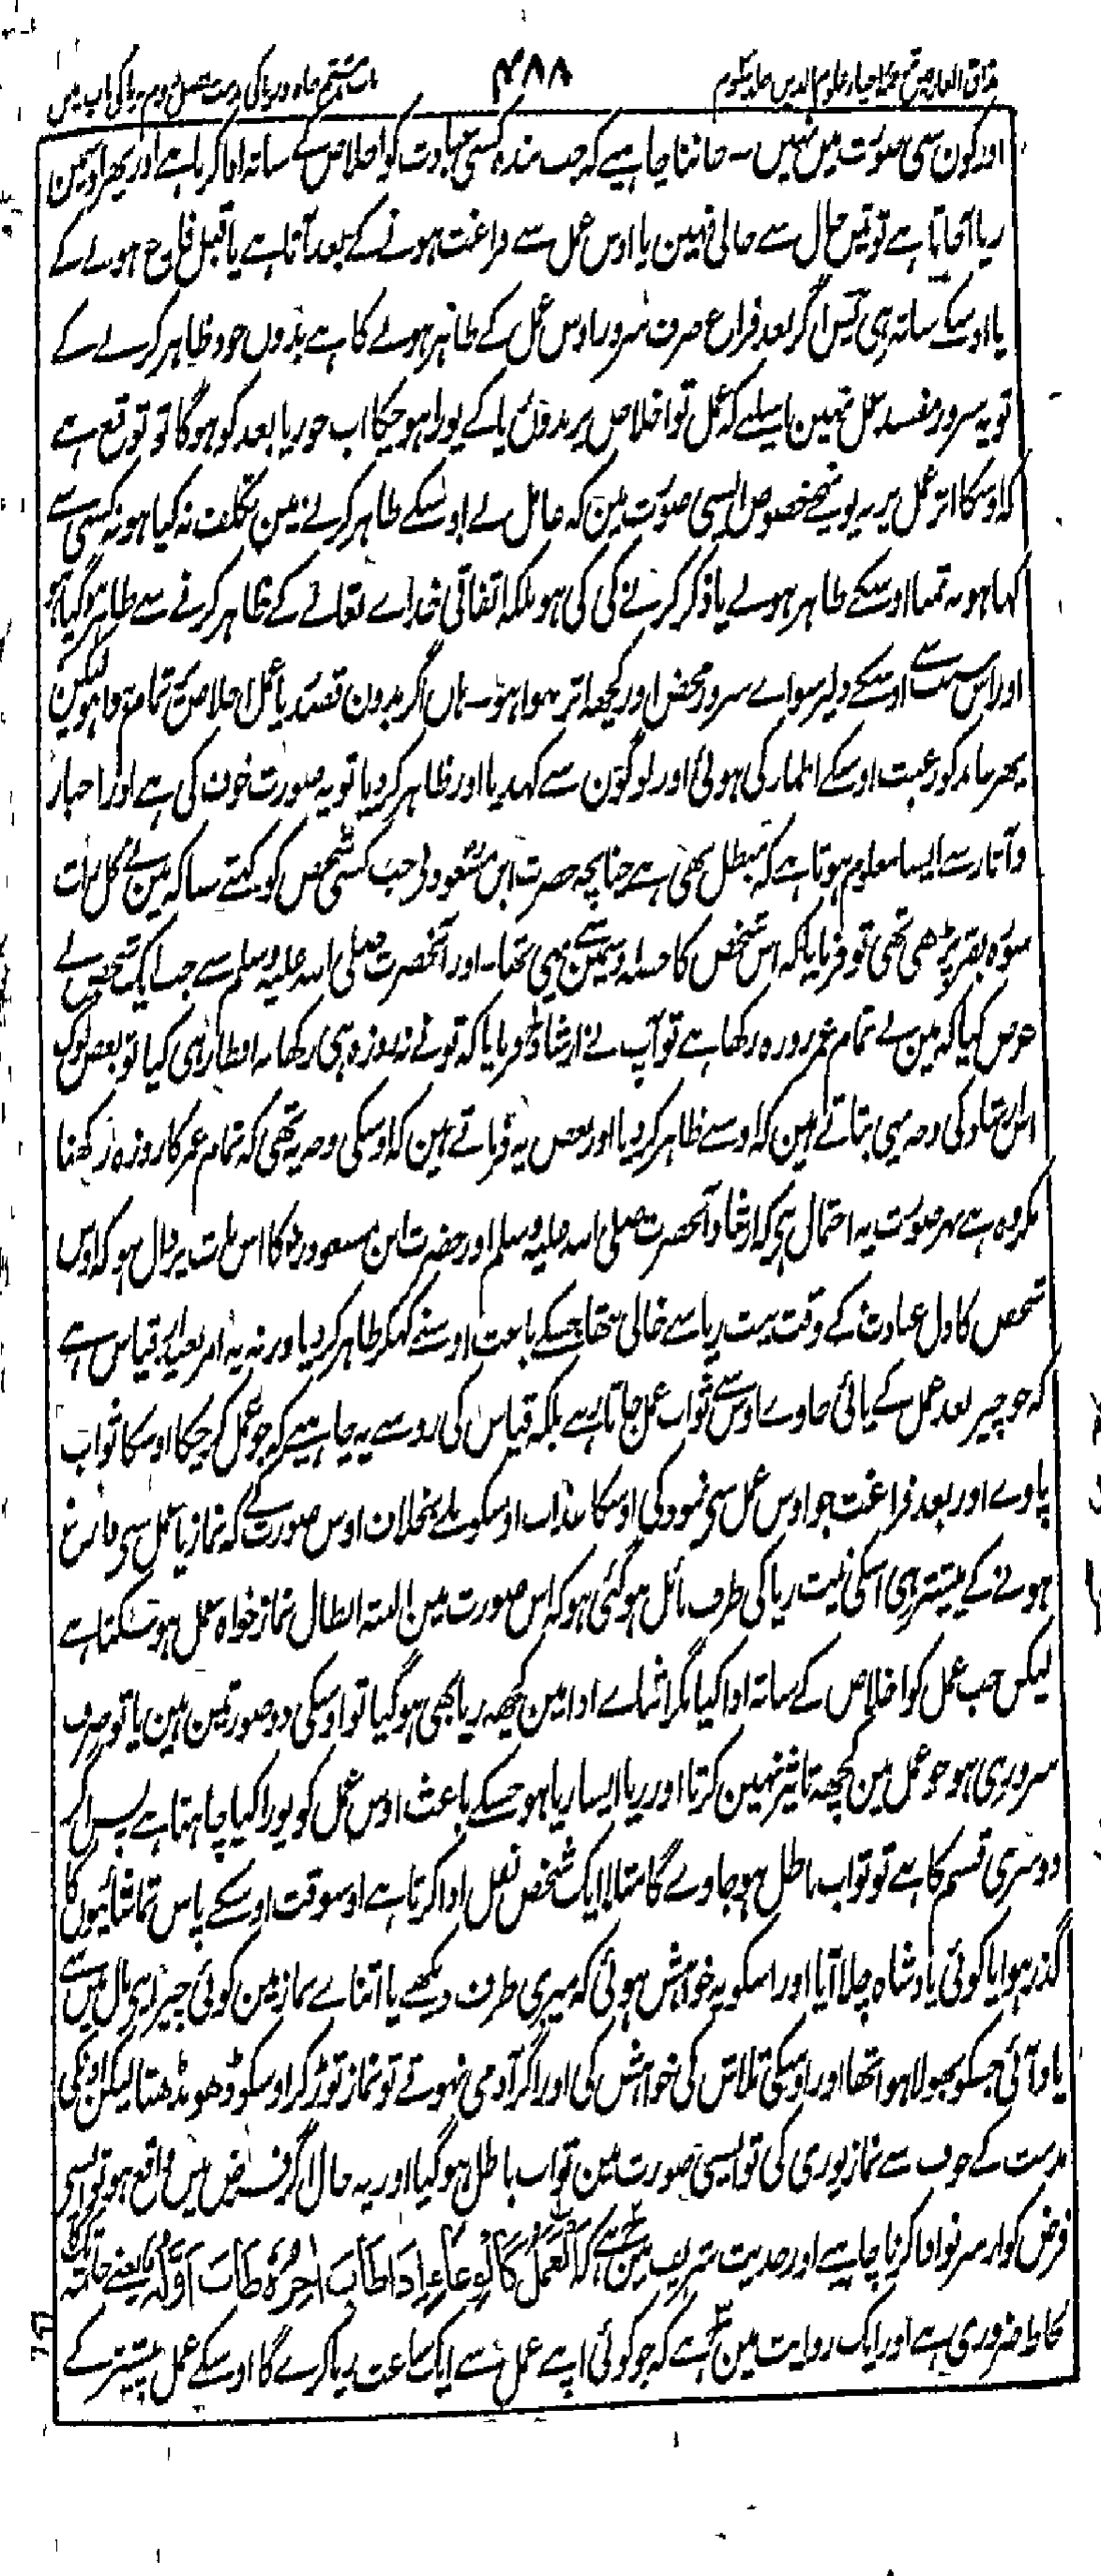 مذاق العارفین ترجمہ احیاء علوم الدین جلد سوم
۴۸۸
باب ہشتم جاہ و ریا کی مذمت فصل دوم ریا کے باب میں
اور کون سی صورت میں نہیں۔ جاننا چاہیے کہ جب بندہ کسی عبادت کو اخلاص کے ساتھ ادا کرتا ہے اور پھر اوسمین
ریا آجاتا ہے تو تین حال سے خالی نہین یا اوس عمل سے فراغت ہونے کے بعد آتا ہے یا قبل فارغ ہونے کے
یا اوسکے ساتھ ہی پس اگر بعد فراغ صرف سرور اوس عمل کے ظاہر ہونے کا ہے بدون خود ظاہر کرنے کے
تو یہ سرور مفسد عمل نہین اسلیے کہ عمل تو اخلاص پر بدون ریا کے پورا ہو چکا اب جو ریا بعد کو ہوگا تو توقع ہے
کہ اوسکا اثر عمل پر نہ پہونچے خصوص ایسی صورت مین کہ عامل نے اوسکے ظاہر کرنے مین تکلف نہ کیا ہو نہ کسی سے
کہا ہو نہ تمنا اوسکے ظاہر ہونے یا ذکر کرنے کی کی ہو بلکہ اتفاقی خداے تعالے کے ظاہر کرنے سے ظاہر ہوگیا ہو
اور اس سبب سے اوسکے دلپر سواے سرور محض اور کچھ اثر نہوا ہو۔ ہاں اگر بدون قصد ریا عمل اخلاص پر تمام ہوا ہو لیکن
پھر عابد کو رغبت اوسکے اظہار کی ہوئی اور لوگون سے کہدیا اور ظاہر کردیا تو یہ صورت خوف کی ہے اور اخبار
و آثار سے ایسا معلوم ہوتا ہے کہ مبطل بھی ہے چنانچہ حضرت ابن مسعود نے جب کسی شخص کو کہتے سنا کہ مین نے کل رات
سورہ بقر پڑھی تھی تو فرمایا کہ اس شخص کا حصہ اوسمین سے یہی تھا۔ اور آنحضرت صلی اللہ علیہ وسلم سے جب ایک شخص نے
عرض کیا کہ مین نے تمام عمر روزہ رکھا ہے تو آپ نے ارشاد فرمایا کہ تو نے نہ روزہ ہی رکھا نہ افطار ہی کیا تو بعض لوگ
اس ارشاد کی وجہ یہی بتاتے ہین کہ اوسنے ظاہر کردیا اور بعض یہ فرماتے ہین کہ اوسکی وجہ یہ تھی کہ تمام عمر کا روزہ رکھنا
مکروہ ہے بہر صورت یہ احتمال ہے کہ ارشاد آنحضرت صلی اللہ علیہ وسلم اور حضرت ابن مسعود رض کا اس بات پر دال ہو کہ اوس
شخص کا دل عبادت کے وقت نیت ریا سے خالی نتھا جسکے باعث اوسنے کہکر ظاہر کردیا ورنہ یہ امر بعید از قیاس ہے
کہ جو چیز بعد عمل کے پائی جاوے اوس سے ثواب عمل جاتا رہے بلکہ قیاس کی رو سے یہ چاہیے کہ جو عمل کر چکا اوسکا ثواب
پاوے اور بعد فراغت جو اوس عمل سے نمود کی اوسکا عذاب اوسکو ملے بخلاف اوس صورت کے کہ نماز یا عمل سے فارغ
ہونے کے پیشتر ہی اسکی نیت ریا کی طرف مائل ہوگئی ہو کہ اس صورت مین البتہ ابطال نماز خواہ عمل ہوسکتا ہے
لیکن جب عمل کو اخلاص کے ساتھ ادا کیا مگر اثناے ادا مین کچھ ریا بھی ہوگیا تو اوسکی دو صورتین ہین یا تو صرف
سرور ہی ہو جو عمل مین کچھ تاثیر نہین کرتا اور ریا ایسا ریا ہو جسکے باعث اوس عمل کو پورا کیا چاہتا ہے پس اگر
دوسری قسم کا ہے تو ثواب باطل ہو جاوے گا مثلا ایک شخص نفل ادا کرتا ہے اوسوقت اوسکے پاس تماشائیوں کا
گذر ہوا یا کوئی بادشاہ چلا آیا اور اسکو یہ خواہش ہوئی کہ میری طرف دیکھے یا اثناے نماز مین کوئی چیز اپنے مال میں سے
یاد آئی جسکو بھولا ہوا تھا اور اوسکی تلاش کی خواہش کی اور اگر آدمی نہوتے تو نماز توڑ کر اوسکو ڈھونڈھتا لیکن اونکی
مذمت کے خوف سے نماز پوری کی تو ایسی صورت مین ثواب باطل ہوگیا اور یہ حال اگر فرض میں واقع ہو تو ایسے
فرض کو از سرنو ادا کرنا چاہیے اور حدیث شریف مین ہے کہ العَمَلُ كَالوِعَاءِ اِذَا طَابَ اٰخِرُہٗ طَابَ اَوَّلُہٗ یعنے خاتمہ کا
لحاظ ضروری ہے اور ایک روایت مین ہے کہ جو کوئی اپنے عمل سے ایک ساعت ریا کرے گا اوسکے عمل پیشتر کے